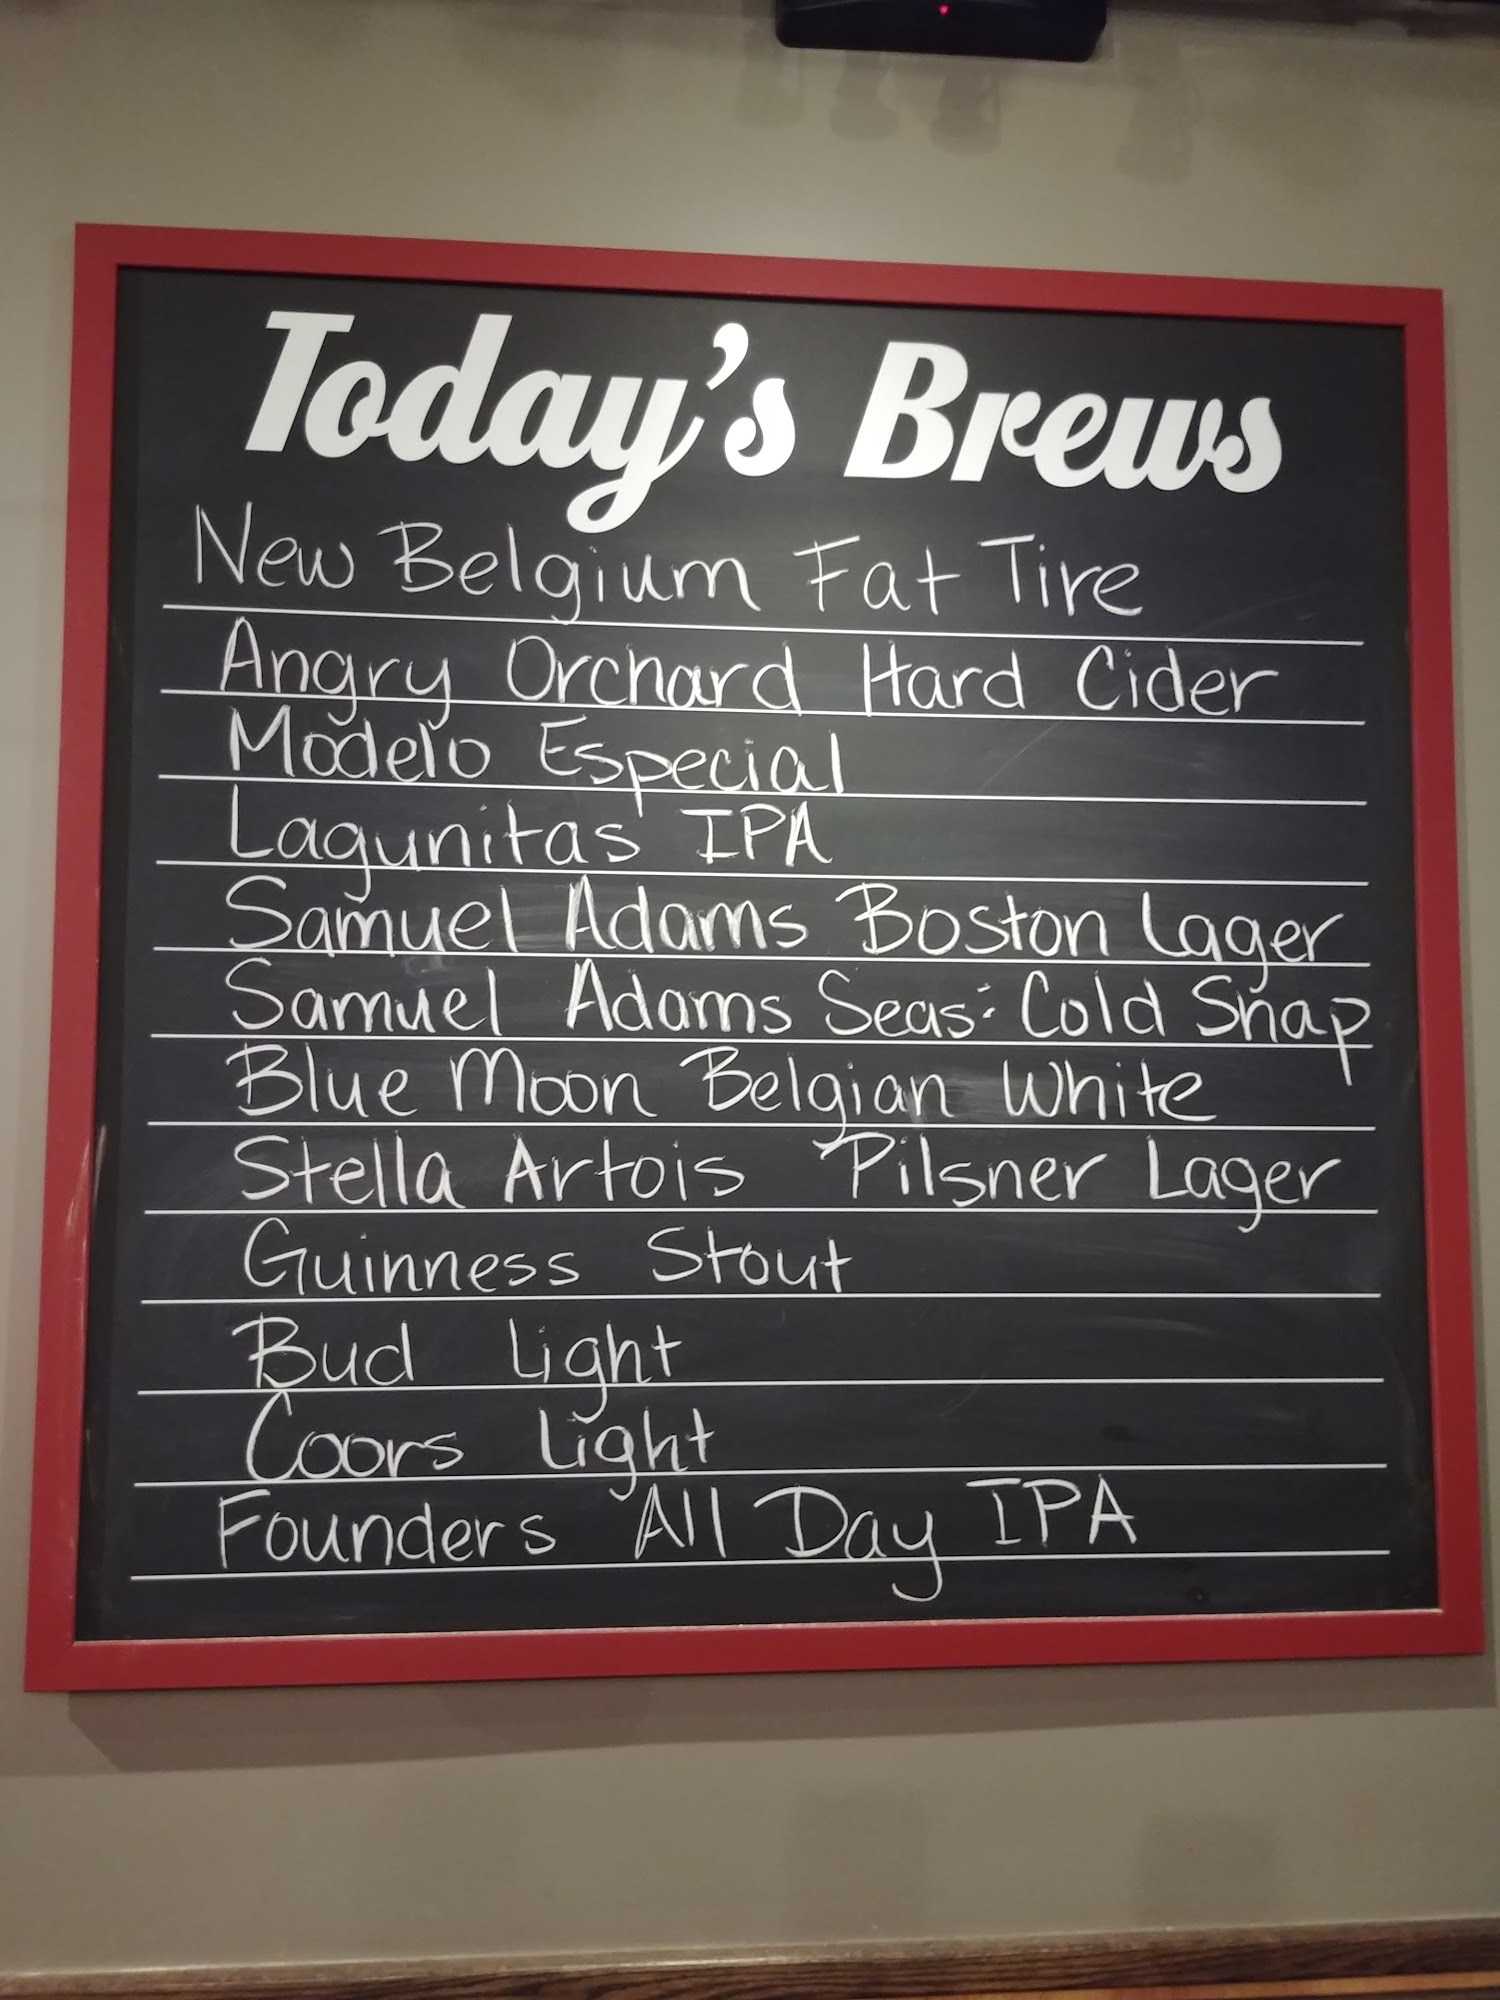 Today's Brews
New Belgium Fat Tire
Angry Orchard Hard Cider
Modelo Especial
Lagunitas IPA
Samuel Adams Boston Lager
Samuel Adams Seas: Cold Snap
Blue Moon Belgian White
Stella Artois Pilsner Lager
Guinness Stout
Bud Light
Coors Light
Founders All Day IPA